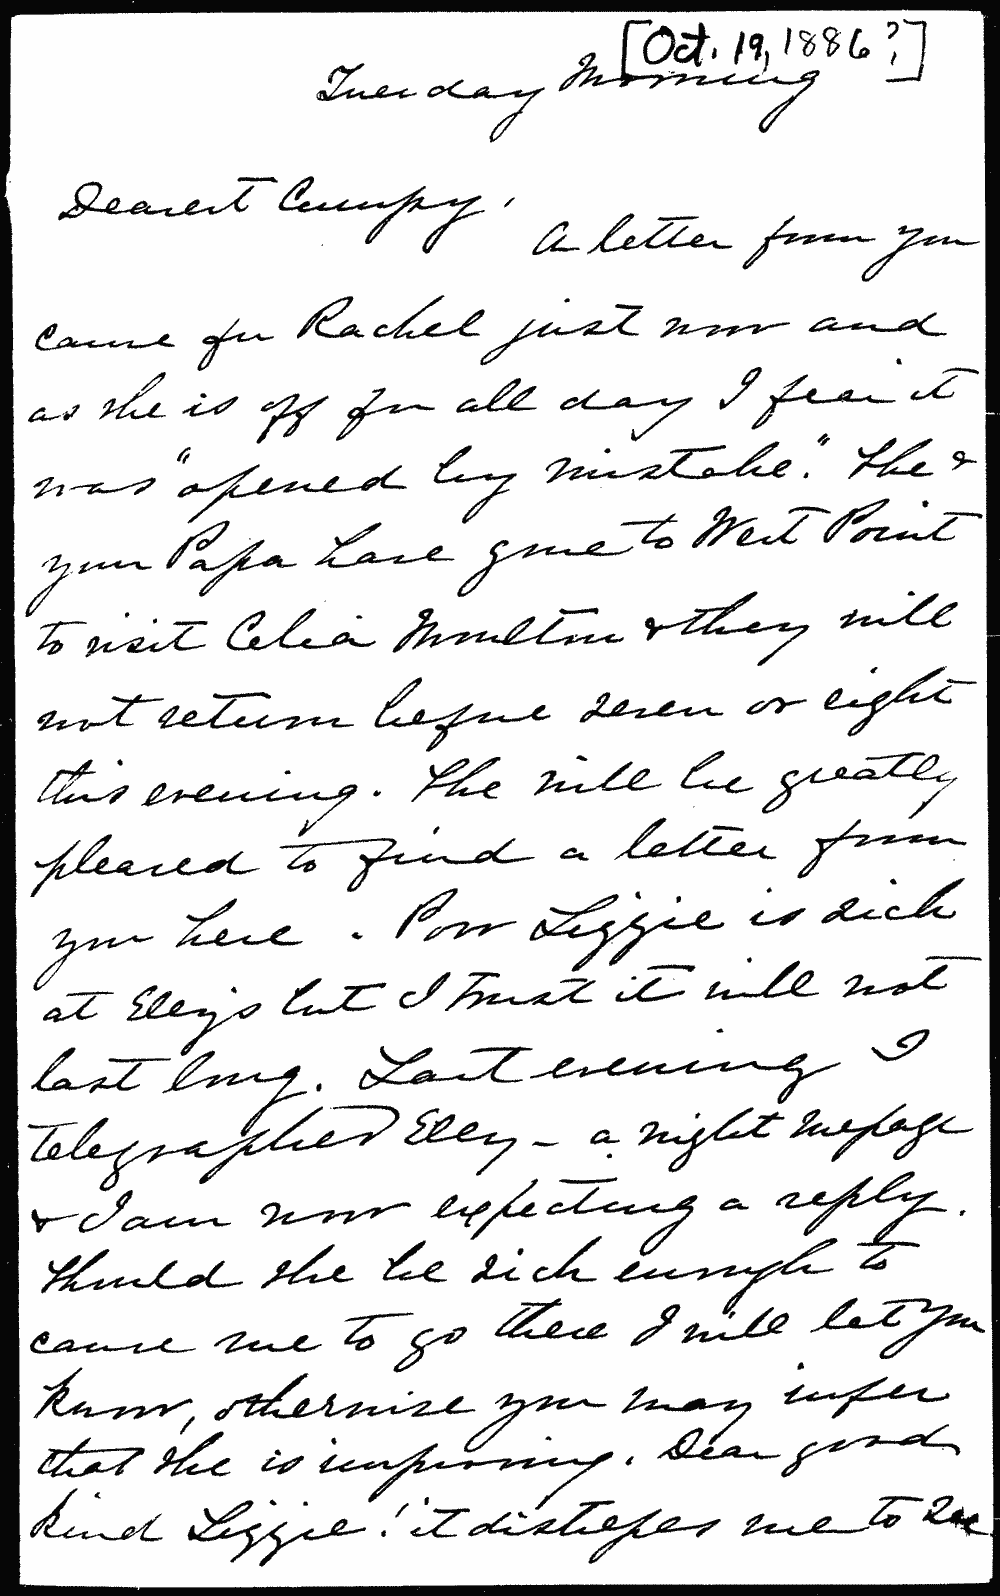 [Oct. 19, 1886?]
Tuesday Morning
Dearest Cumpy,
A letter from you
came for Rachel just now and
as she is off for all day I fear it
was "opened by mistake". She &
your Papa have gone to West Point
to visit Celia Moulton & they will
not return before seven or eight
this evening. She will be greatly
pleased to find a letter from
you here. Poor Lizzie is sick
at Elly's but I trust it will not
last long. Last evening I
telegraphed Elly - a night message
& I am now expecting a reply.
Should she be sick enough to
cause me to go there I will let you
know, otherwise you may infer
that she is improving. Dear good
kind Lizzie! it distresses me to see